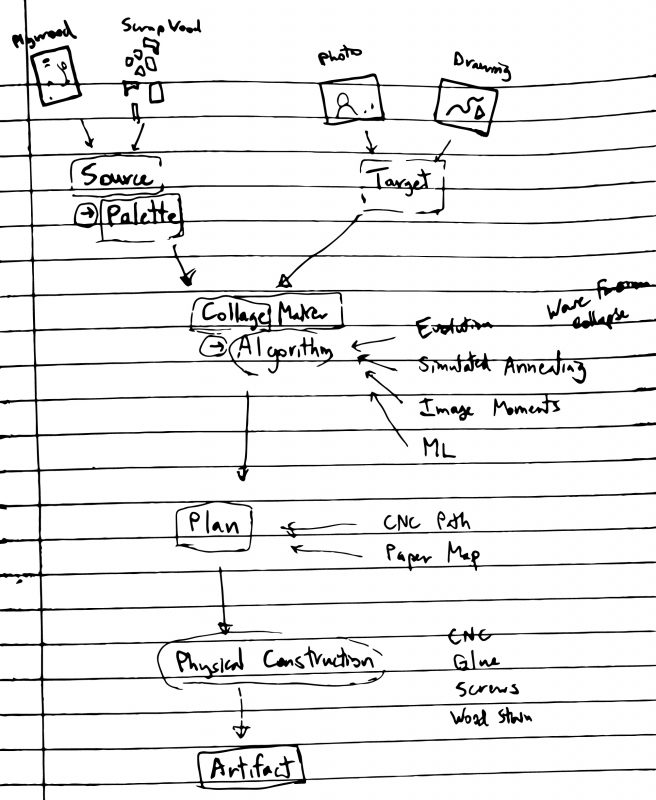 Plywood
Scrap Wood
Photo
Drawing
Source
→ Palette
Target
Collage Maker
→ Algorithm
Evolution
Simulated Annealing
Image Moments
ML
Wave Function
Collapse
Plan
CNC Path
Paper Map
Physical Construction
CNC
Glue
Screws
Wood Stain
Artifact